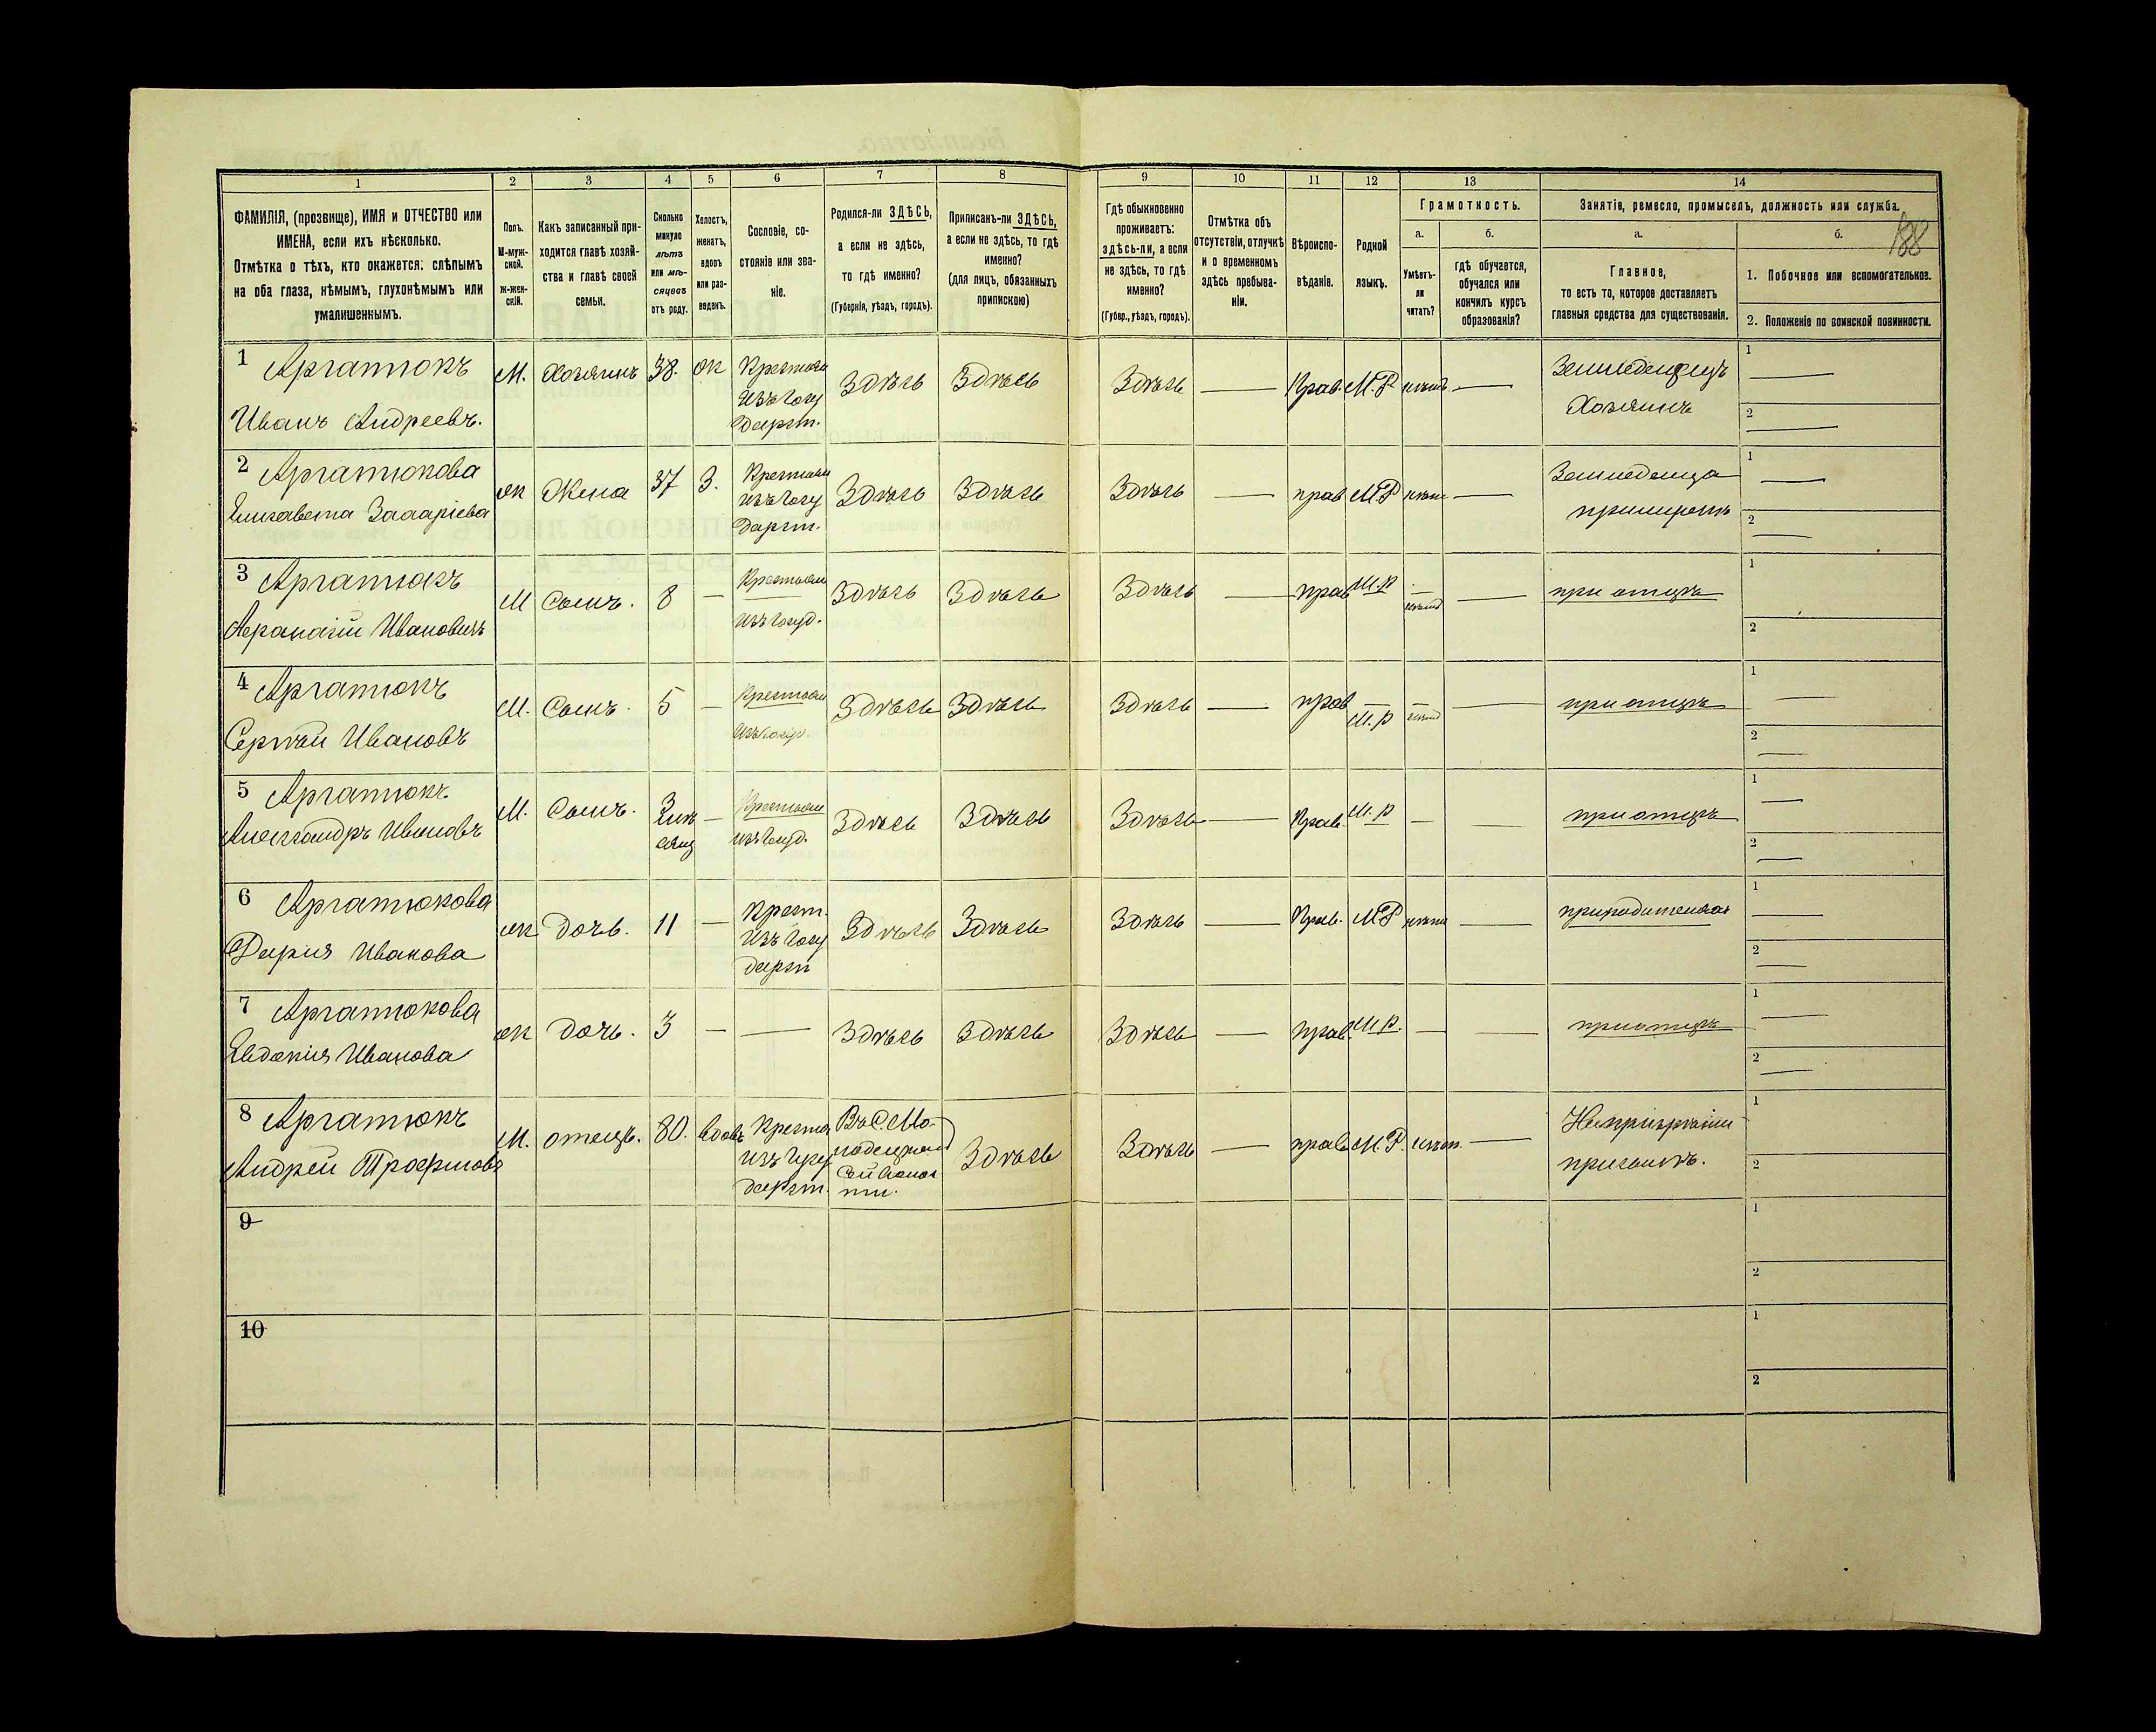 188
1 2 3 4 5 6 7 8 9 10 11 12 13 14
ФАМИЛІЯ, (прозвище), ИМЯ и ОТЧЕСТВО или
ИМЕНА, если ихъ нѣсколько.
Отмѣтка о тѣхъ, кто окажется: слѣпымъ
на оба глаза, нѣмымъ, глухонѣмымъ или
умалишеннымъ.
Полъ.
М-муж-
ской.
ж-жен-
скій.
Какъ записанный при-
ходится главѣ хозяй-
ства и главѣ своей
семьи.
Сколько
минуло
лѣтъ
или мѣ-
сяцевъ
отъ роду.
Холостъ,
женатъ,
вдовъ
или раз-
веденъ.
Сословіе, со-
стояніе или зва-
ніе.
Родился-ли ЗДѢСЬ,
а если не здѣсь,
то гдѣ именно?
(Губернія, уѣздъ, городъ).
Приписанъ-ли ЗДѢСЬ,
а если не здѣсь, то гдѣ
именно?
(для лицъ, обязанныхъ
припискою)
Гдѣ обыкновенно
проживаетъ:
здѣсь-ли, а если
не здѣсь, то гдѣ
именно?
(Губер., уѣздъ, городъ).
Отмѣтка объ
отсутствіи, отлучкѣ
и о временномъ
здѣсь пребыва-
ніи.
Вѣроиспо-
вѣданіе.
Родной
языкъ.
Грамотность.
а.
Умѣетъ-
ли
читать?
б.
гдѣ обучается,
обучался или
кончилъ курсъ
образованія?
Занятіе, ремесло, промыселъ, должность или служба.
а.
Главное,
то есть то, которое доставляетъ
главныя средства для существованія.
б.
1. Побочное или вспомогательное.
2. Положеніе по воинской повинности.
1 Аргатюкъ
Иванъ Андреевъ.
М. Хозяинъ 38. ж
изъ госу
дарст.
Здѣсь Здѣсь Здѣсь — Прав. М.Р нѣтъ —
Хозяинъ
1 —
2 —
2 Аргатюкова
Елизавета
ж Жена 37 З.
изъ госу
дарст.
Здѣсь Здѣсь Здѣсь — прав М.Р —
1 —
2 —
3 Аргатюкъ
Ивановичъ
М Сынъ. 8 —
изъ госуд.
Здѣсь Здѣсь Здѣсь — прав М.р — —
при отцѣ
1
2
4 Аргатюкъ
Сергѣй Ивановъ
М. Сынъ. 5 —
изъ госуд.
Здѣсь Здѣсь Здѣсь — прав М.р — —
при отцѣ
1 —
2 —
5 Аргатюкъ
Александръ Ивановъ
М. Сынъ. 3 —
изъ госуд.
Здѣсь Здѣсь Здѣсь — Прав. М.р — —
при отцѣ
1 —
2 —
6 Аргатюкова
Дарія Иванова
ж дочь. 11 — Крест.
изъ госу
дарст
Здѣсь Здѣсь Здѣсь — Прав. М.Р —
1 —
2 —
7 Аргатюкова
Евдокія Иванова
ж дочь. 3 — — Здѣсь Здѣсь Здѣсь — прав. М.р. — —
при отцѣ
1 —
2 —
8 Аргатюкъ
Андрей
М. отецъ. 80. вдовъ
изъ госу
дарст.
Здѣсь Здѣсь — прав М.Р. —
1
2
9
1
2
10
1
2